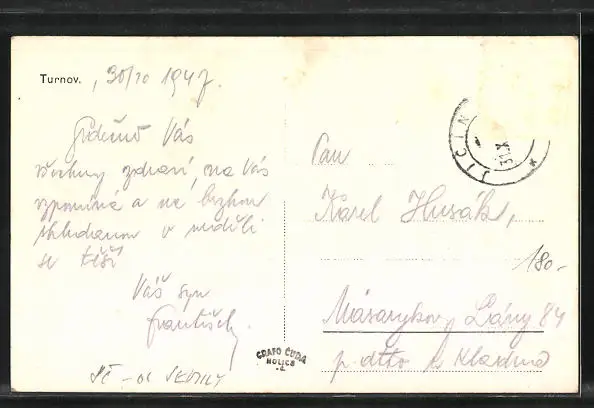 Turnov. , 30/10 1947.
Srdečně Vás
všechny zdraví, na Vás
vzpomíná a na brzkou
shledanou v neděli
se těší
Váš syn
František
JIČÍN
31.X
Pan
Karel Husák,
180.-
Masarykovy Lány 84
p. dtto u Kladna
GRAFO ČUDA
HOLICE